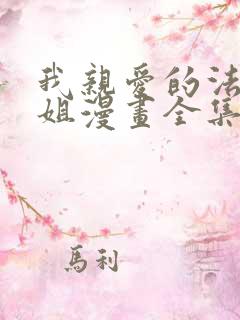 我親愛的法
姐漫畫全集
馬利